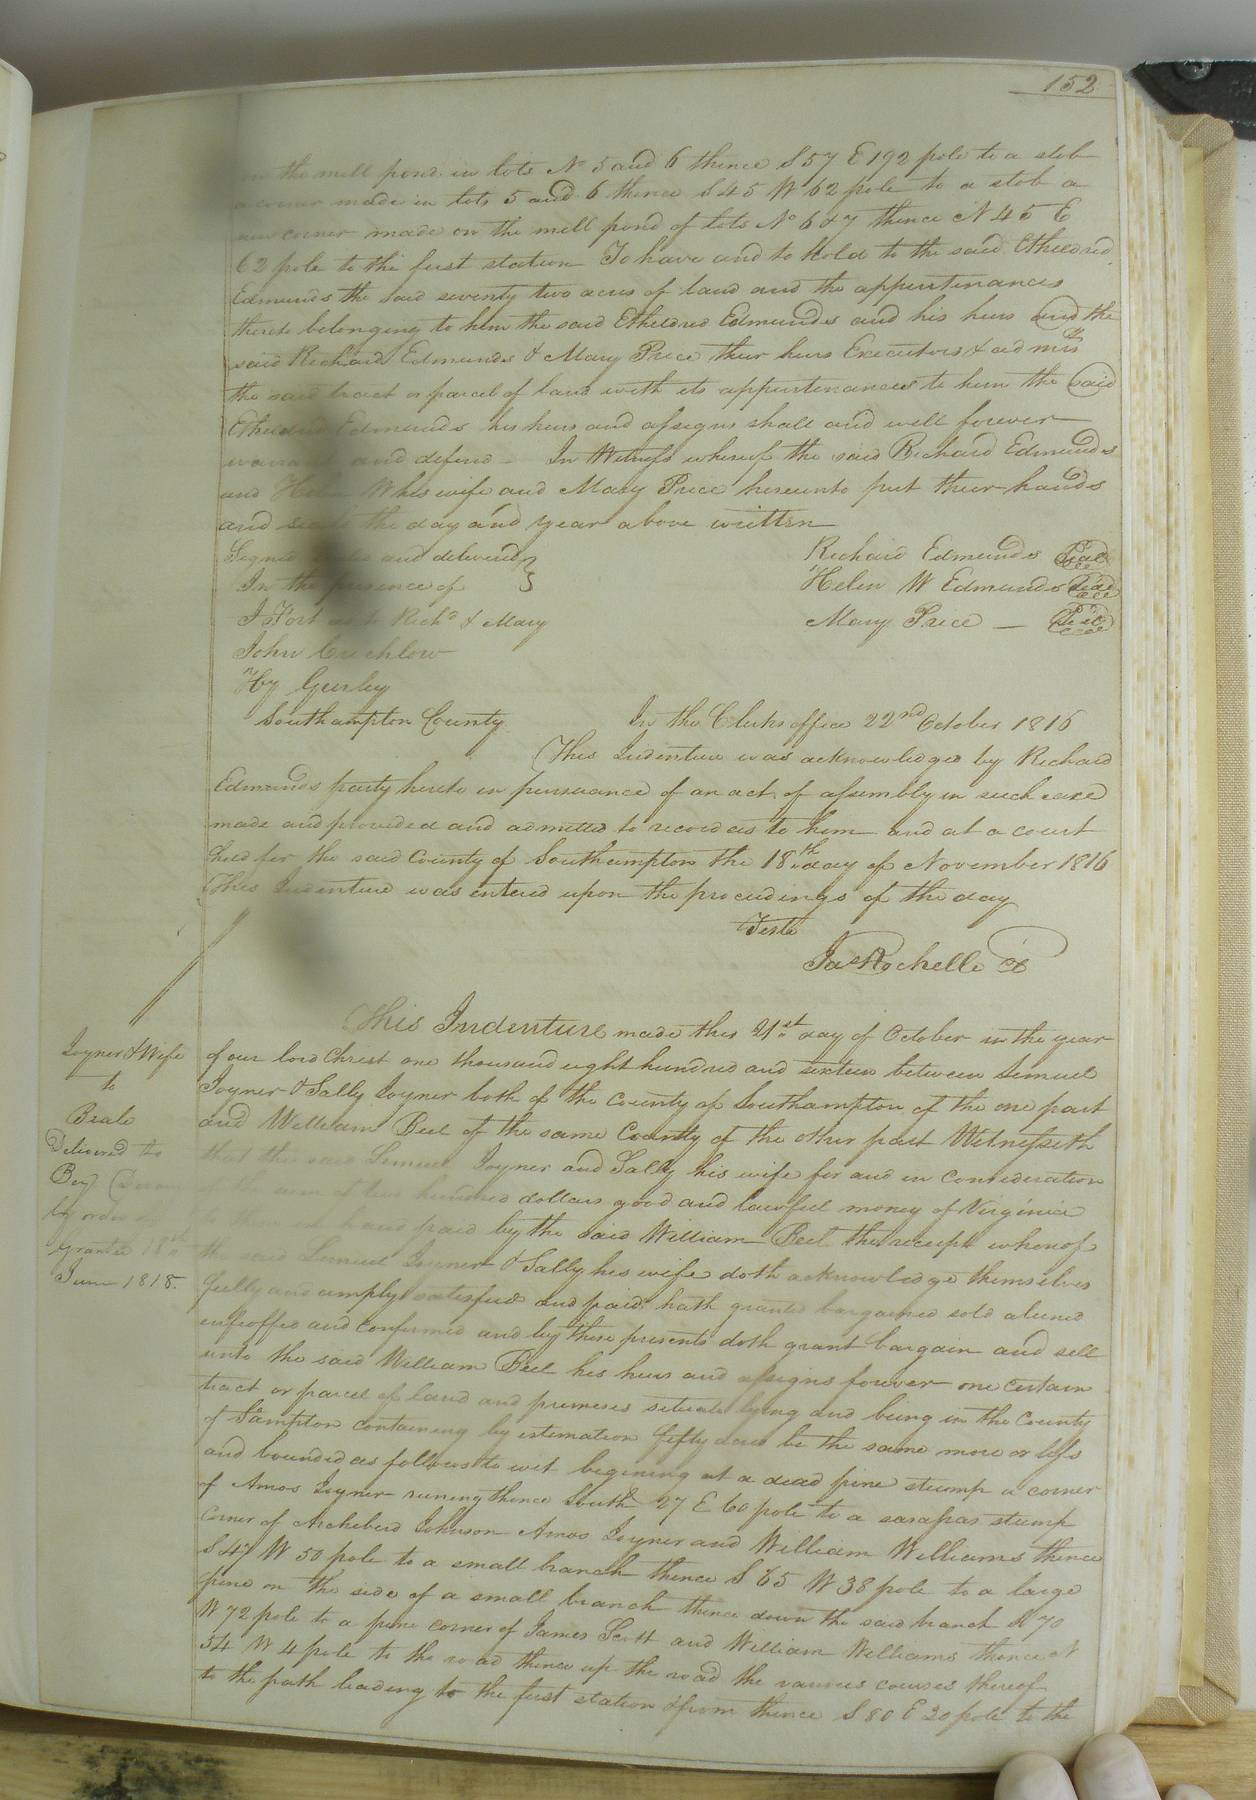 152
on the mill pond in lots No 5 and 6 thence S 57 E 192 pole to a stob
a corner made in lots 5 and 6 thence S 45 W 62 pole to a stob a
new corner made on the mill pond of lots No 6 & 7 thence N 45 E
62 pole to the first station To have and to Hold to the said Etheldred
Edmunds the said seventy two acres of land and the appurtenances
thereto belonging to him the said Etheldred Edmunds and his heirs and the
said Richard Edmunds & Mary Price their heirs Executors & admrs
the said tract or parcel of land with its appurtenances to him the said
Etheldred Edmunds his heirs and assigns shall and will forever
warrant and defend - In Witness whereof the said Richard Edmunds
and Helen W his wife and Mary Price hereunto put their hands
and seals the day and year above written
Signed sealed and delivered
In the presence of
J Fort as to Richd & Mary
John Crichlow
Hy Gurley
Richard Edmunds Seal
Helen W Edmunds Seal
Mary Price — Seal
Southampton County In the Clerks office 22nd October 1816
This Indenture was acknowledged by Richard
Edmunds party hereto in pursuance of an act of assembly in such case
made and provided and admitted to record as to him and at a court
held for the said County of Southampton the 18th day of November 1816
This Indenture was entered upon the proceedings of the day
Teste
Jas Rochelle Ck
Joyner & Wife
to
Beale
Delivered to
Benj
by order of
grantee 18th
June 1818.
This Indenture made this 21st day of October in the year
of our lord Christ one thousand eight hundred and sixteen between Lemuel
Joyner & Sally Joyner both of the County of Southampton of the one part
and William Beel of the same County of the other part Witnesseth
that the said Lemuel Joyner and Sally his wife for and in Consideration
of the sum of two hundred dollars good and lawful money of Virginia
in hand paid by the said William Beel the receipt whereof
the said Lemuel Joyner & Sally his wife doth acknowledge themselves
fully and amply satisfied and paid hath granted bargained sold aliened
enfeoffed and confirmed and by these presents doth grant bargain and sell
unto the said William Beel his heirs and assigns forever one certain
tract or parcel of land and premeses situate lying and being in the County
of Sampton containing by estemation fifty acres be the same more or less
and bounded as follows to wit begining at a dead pine stump a corner
of Amos Joyner runing thence South 27 E 60 pole to a sasafras stump
Corner of Archeberd Johnson Amos Joyner and William Williams thence
S 47 W 50 pole to a small branch thence S 65 W 38 pole to a large
pine on the side of a small branch thence down the said branch N 70
W 72 pole to a pine corner of James Scott and William Williams thence N
54 W 4 pole to the road thence up the road the various courses thereof
to the path leading to the first station & from thence S 80 E 20 pole to the